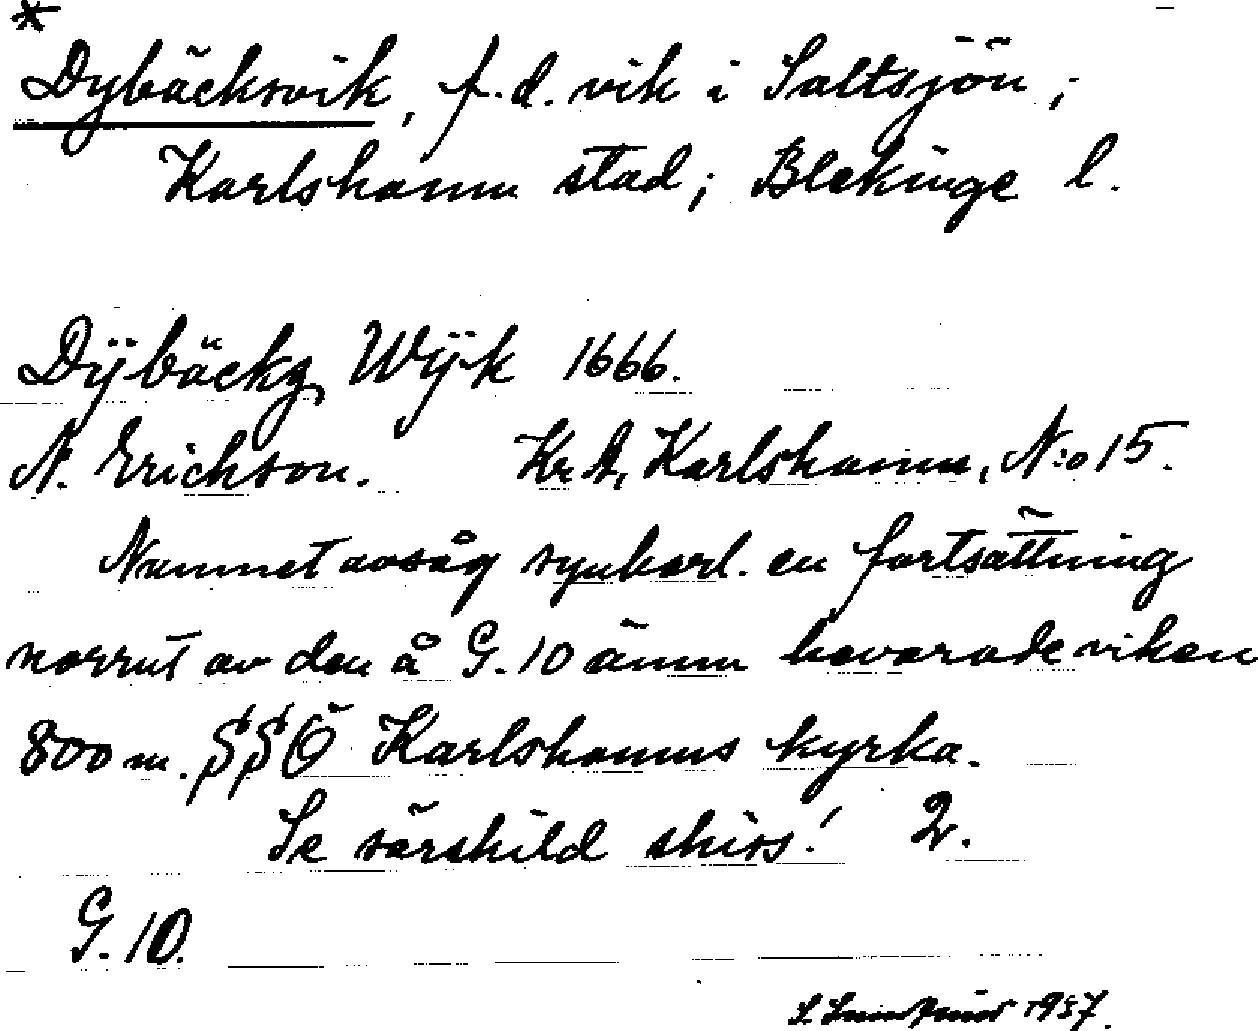 *
Dybäcksvik, f.d. vik i Saltsjön;
Karlshamn stad; Blekinge l.
Dÿbäckz Wÿk 1666.
N. Erichson. Kr. A, Karlshamn, N:o 15.
Namnet avsåg synbarl. en fortsättning
norrut av den å G.10 ännu bevarade viken
800 m. SSÖ Karlshamns kyrka.
Se särskild skiss! 2.
G. 10.
1937.